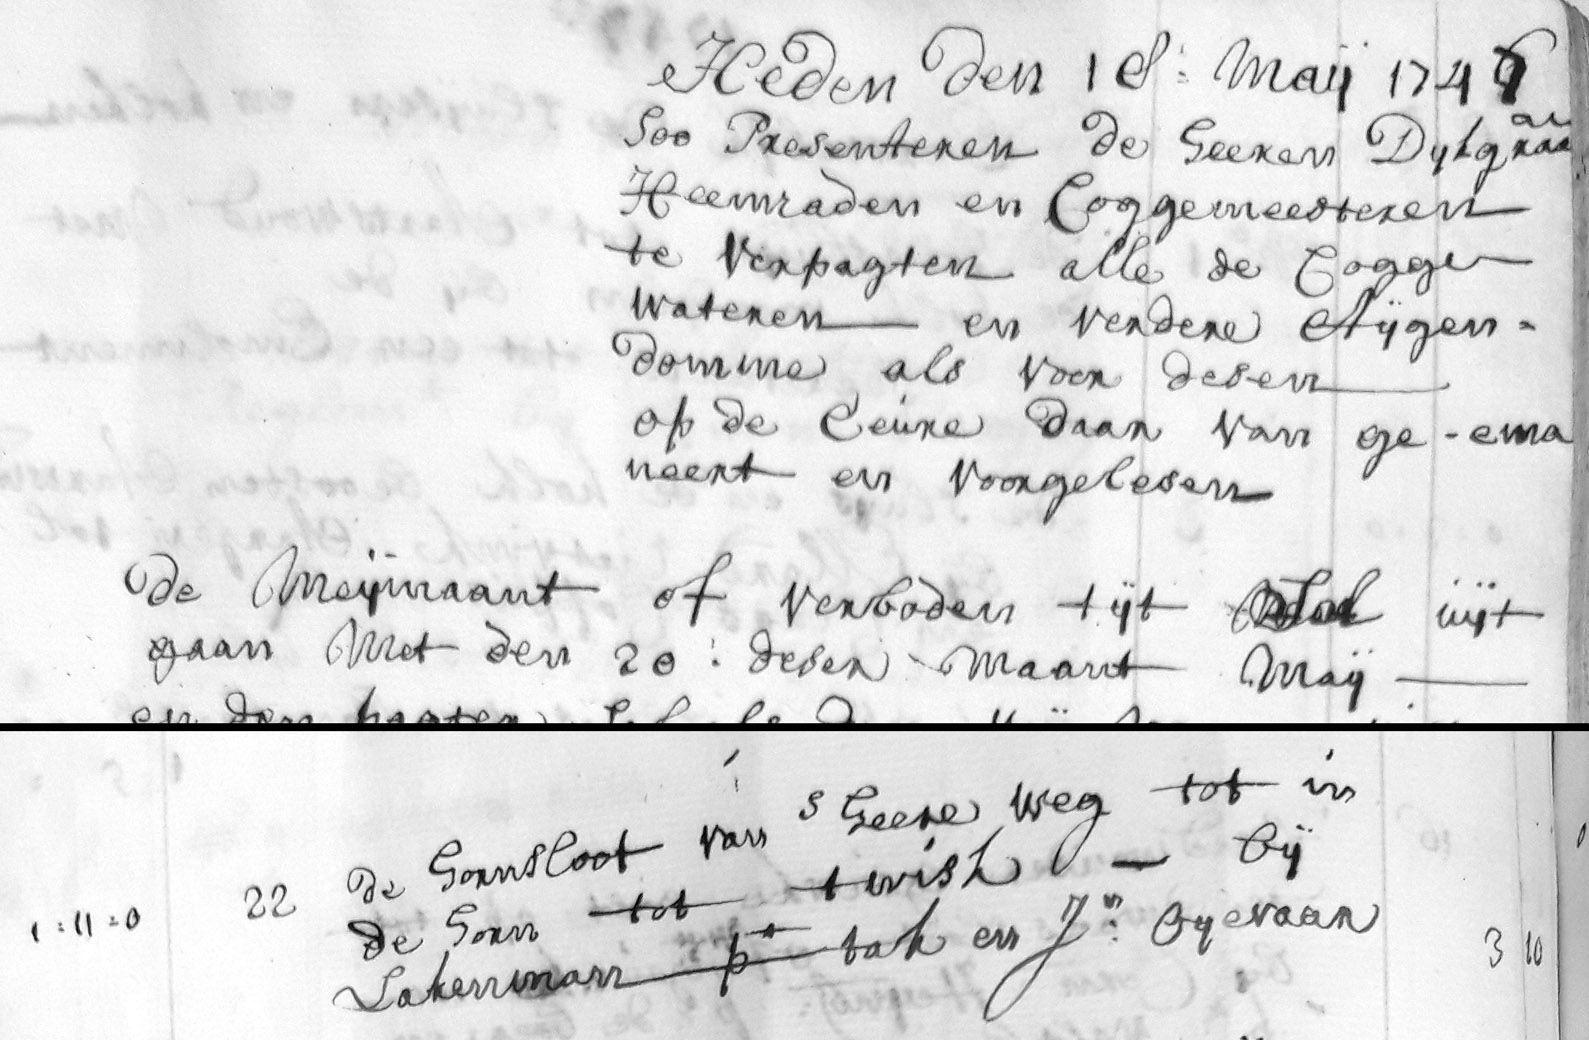 Heden den 18: Maij 1746
Soo Presenteren de Heeren Dykgraa
Heemraden en Coggemeesteren
te Verpagten alle de Cogge
wateren en verdere Eijgen-
domme als voor desen
op de Ceúre daar van ge-ema
neert en voorgelesen
De Meijmaant of verboden tijt sal uijt
gaan Met den 20: deser Maant Maij
22 de Gornsloot van s Heere weg tot in
de Gorn tot twisk bij
1:11:0 Lakenman tak en Jn: 3 10